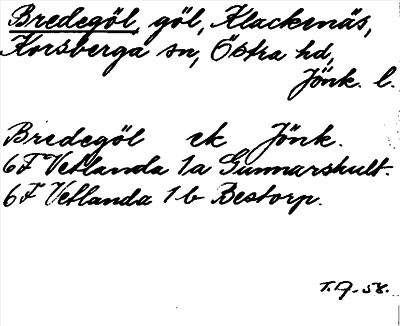 Bredegöl, göl, Klackenäs,
Korsberga sn, Östra hd,
Jönk. l.
Bredegöl ek Jönk.
6F Vetlanda 1a Gunnarshult.
6F Vetlanda 1b Bestorp.
T.A-58.